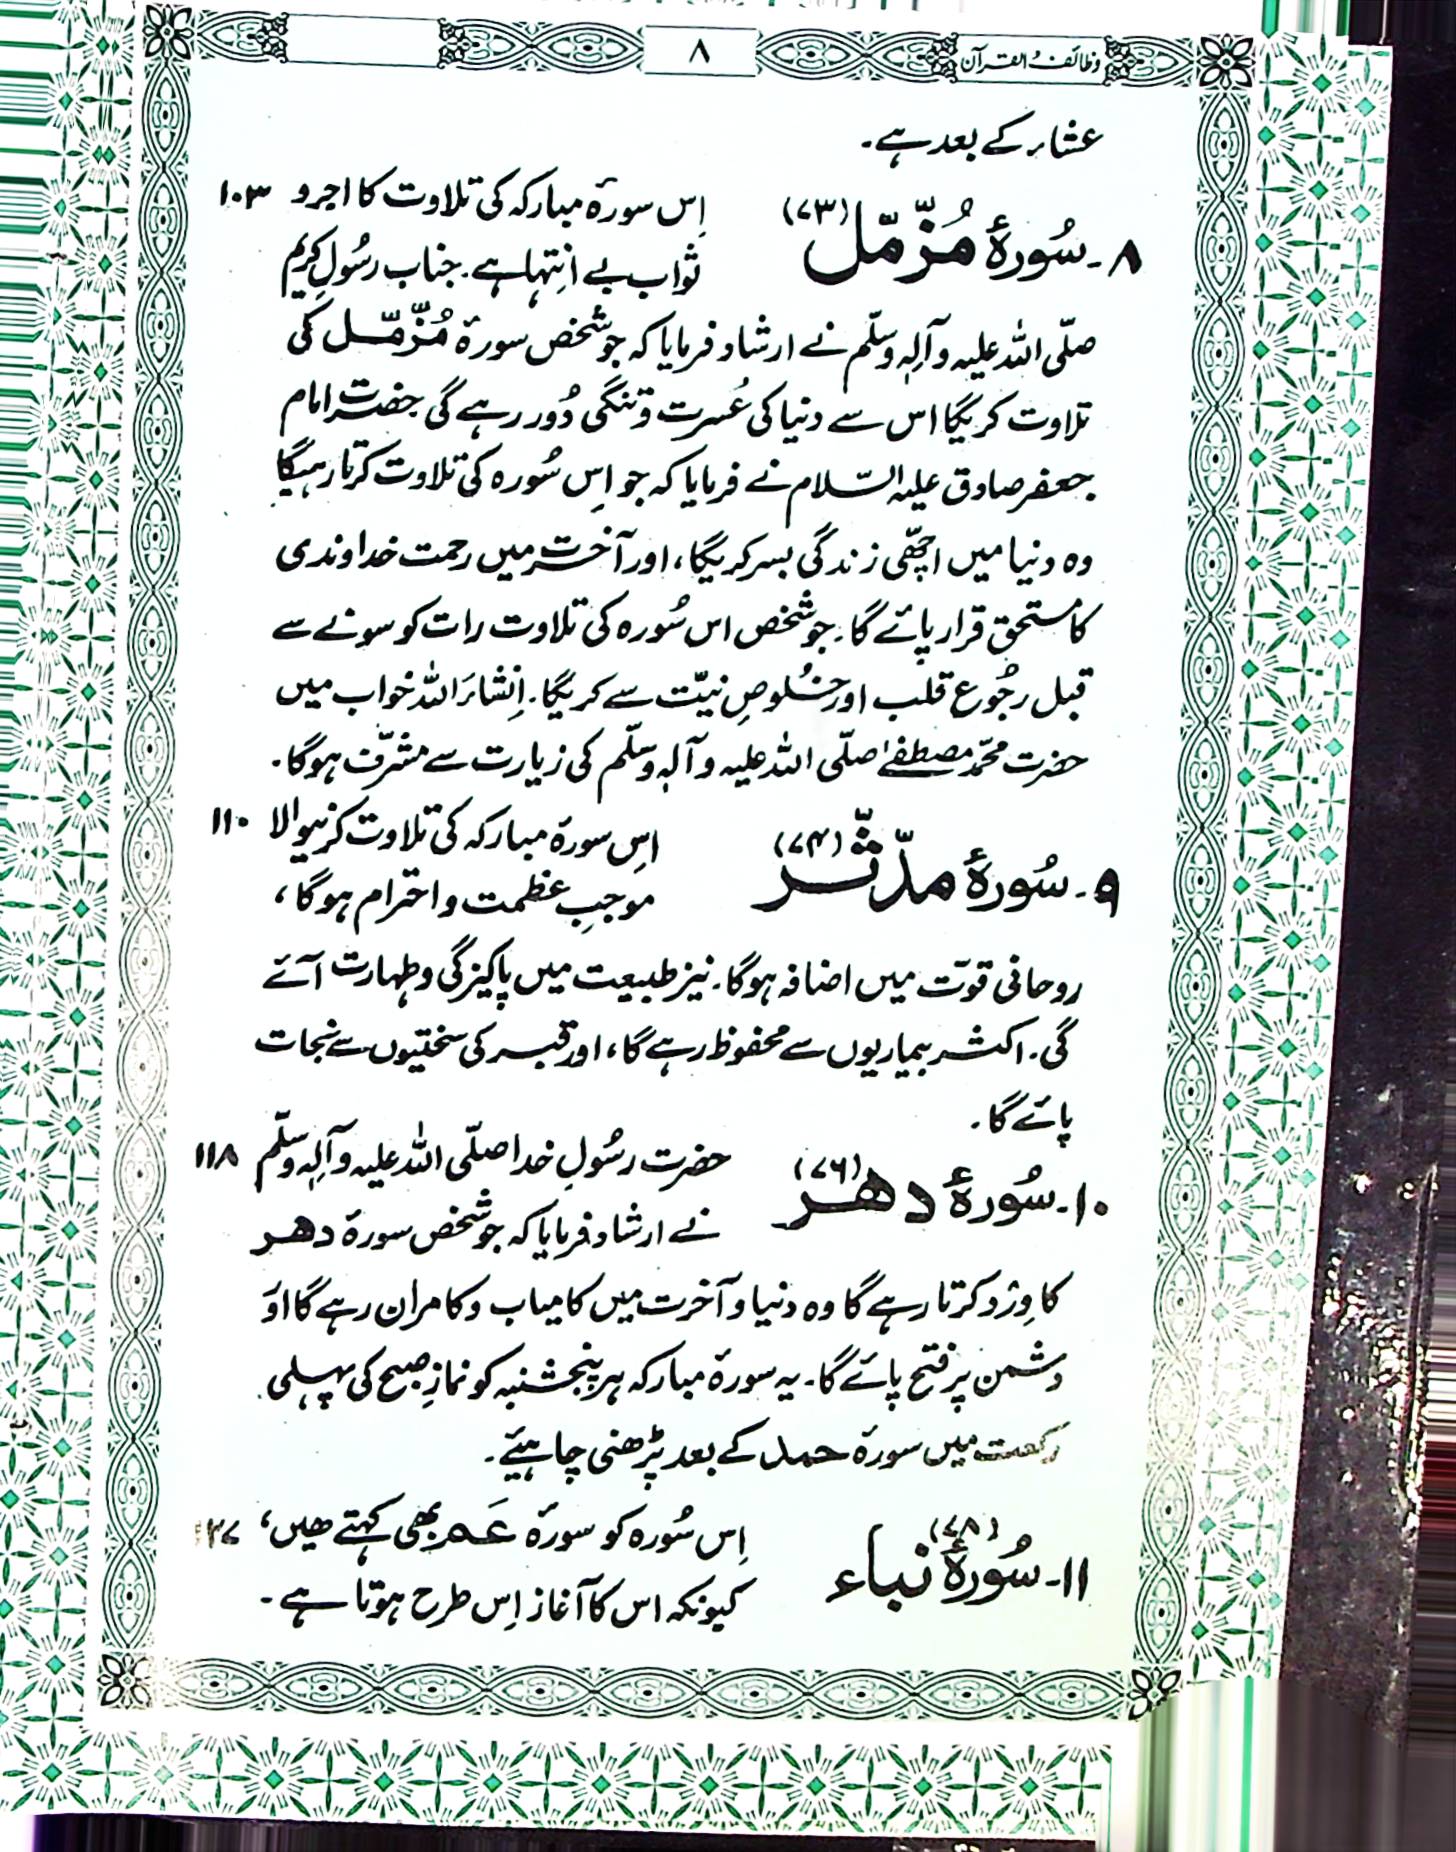 وظائف القرآن
۸
عشاء کے بعد ہے۔
۸۔ سُورۂ مُزّمّل (۷۳) اِس سورۂ مبارکہ کی تلاوت کا اجر و ۱۰۳
ثواب بے اِنتہا ہے۔ جناب رسُولِ کریم
صلّی اللہ علیہ وآلہٖ وسلّم نے ارشاد فرمایا کہ جو شخص سورۂ مُزّمّل کی
تلاوت کریگا اس سے دنیا کی عُسرت و تنگی دُور رہے گی حضرت امام
جعفر صادق علیہ السّلام نے فرمایا کہ جو اِس سُورہ کی تلاوت کرتا رہیگا
وہ دنیا میں اچھّی زندگی بسر کریگا، اور آخرت میں رحمت خداوندی
کا مستحق قرار پائے گا۔ جو شخص اس سُورہ کی تلاوت رات کو سونے سے
قبل رجُوع قلب اور خلُوصِ نیّت سے کریگا۔ اِنشاءَ اللہ خواب میں
حضرت محمّد مصطفےٰ صلّی اللہ علیہ وآلہٖ وسلّم کی زیارت سے مشرّف ہوگا۔
۹۔ سُورۂ مدّثّر (۷۴) اِس سورۂ مبارکہ کی تلاوت کرنیوالا ۱۱۰
موجبِ عظمت و احترام ہوگا،
روحانی قوّت میں اضافہ ہوگا۔ نیز طبیعت میں پاکیزگی و طہارت آئے
گی۔ اکثر بیماریوں سے محفوظ رہے گا، اور قبر کی سختیوں سے نجات
پائے گا۔
۱۰۔ سُورۂ دھر (۷۶) حضرت رسُولِ خدا صلّی اللہ علیہ وآلہٖ وسلّم ۱۱۸
نے ارشاد فرمایا کہ جو شخص سورۂ دھر
کا وِرْد کرتا رہے گا وہ دنیا و آخرت میں کامیاب و کامران رہے گا اوَ
دشمن پر فتح پائے گا۔ یہ سورۂ مبارکہ ہر پنجشنبہ کو نمازِ صبح کی پہلی
رکعت میں سورۂ حمد کے بعد پڑھنی چاہیئے۔
۱۱۔ سُورۂ نباء (۷۸) اِس سُورہ کو سورۂ عَمَّ بھی کہتے ھیں، ۱۲۷
کیونکہ اس کا آغاز اِس طرح ہوتا ہے۔